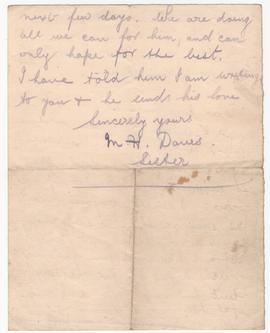 next few days. We are doing
all we can for him, and can
only hope for the best.
I have told him I am writing
to you & he sends his love
Sincerely yours
M H. Davies.
Sister